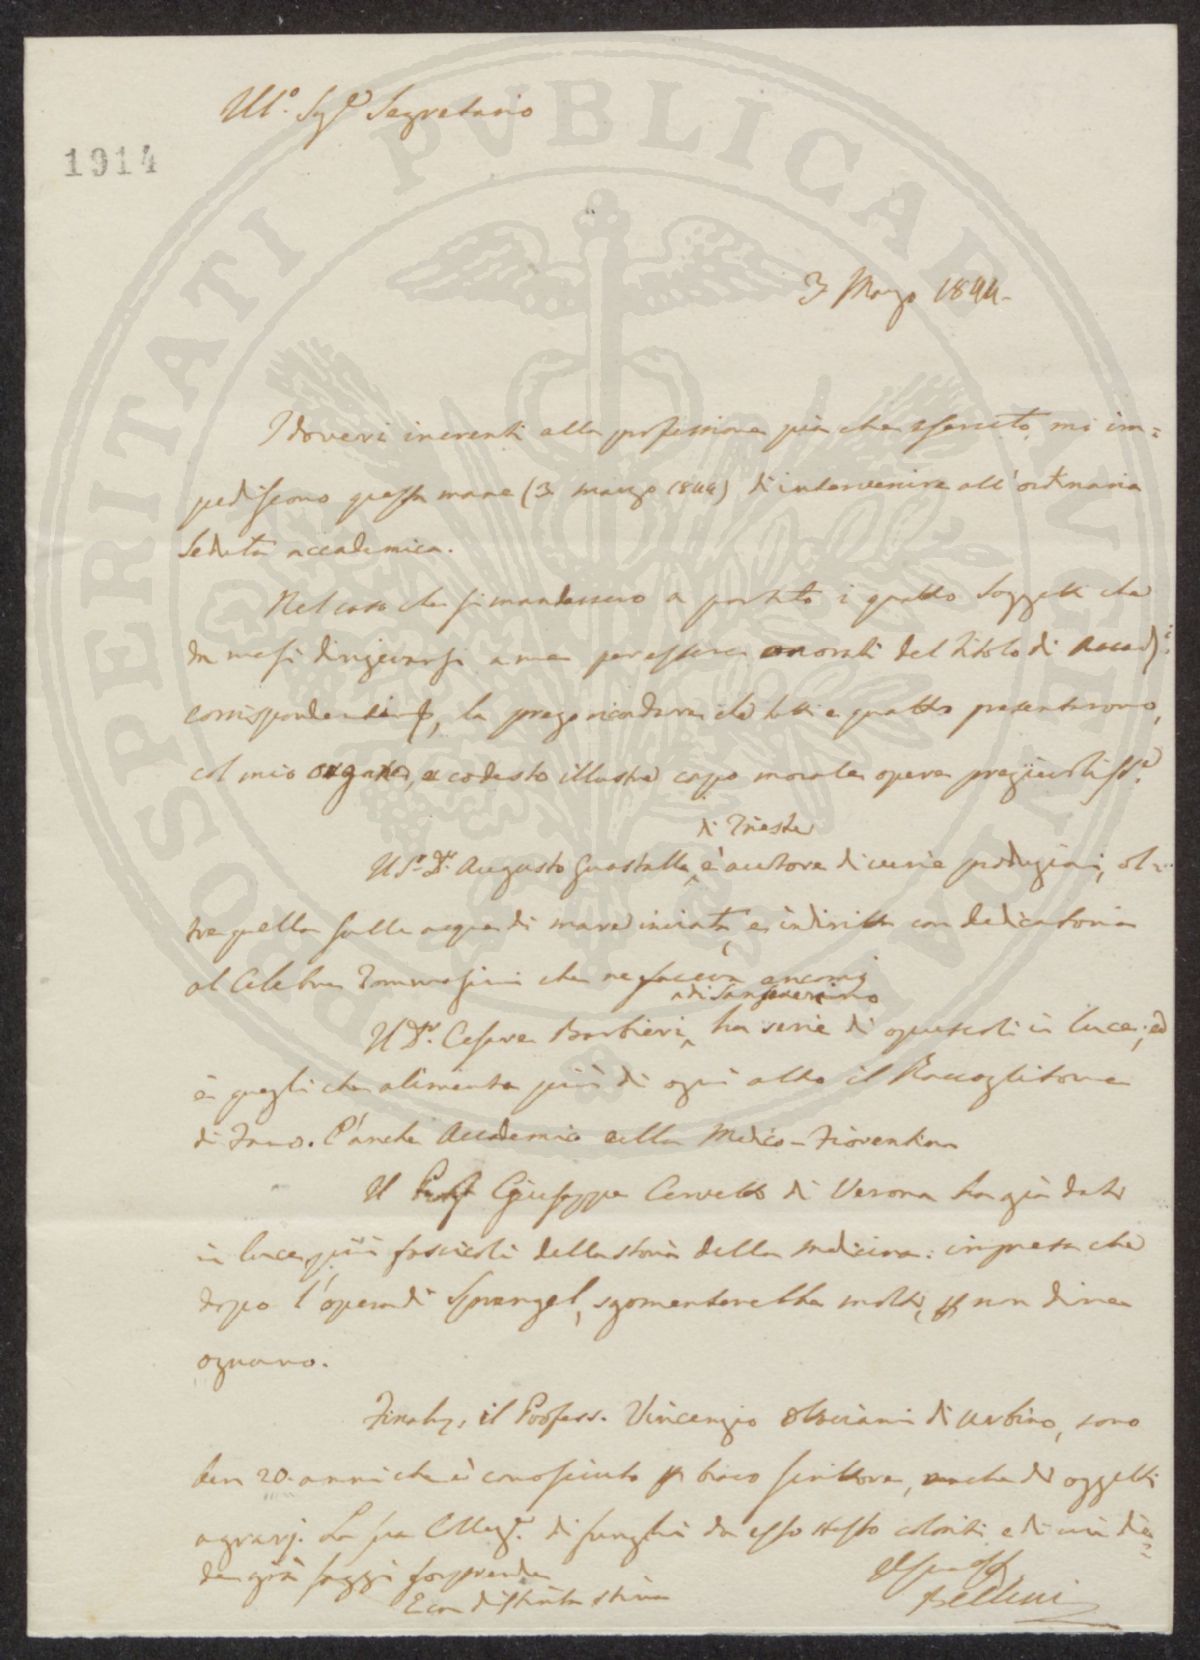 Ill.º Sig.e Segretario
1914
3 Marzo 1844.
I doveri inerenti alla professione più che esercito, mi im=
pediscono questa mane (3 marzo 1844) di intervenire all'ordinaria
seduta accademica.
Nel caso che si mandassero a partito i quatto soggetti che
da mesi dirigevansi a me per essere onorati del titolo di Accad:i
corrispondenti, la prego ricordare che tutti e quatto presentarono,
col mio organo, a codesto illustre corpo morale opere pregievoliss.e
di Trieste
Il S.r D.r Augusto Guastalla, è autore di varie produzioni, ol=
tre quella sulle acque di mare iniziata, e indiritta con dedicatoria
al Celebre Tommasini che ne faceva encomj
di Sanseverino
Il D.r Cesare Barbieri, ha serie di opuscoli in luce; ed
è quegli che alimenta più di ogni alto il Raccoglitore
di Fano. È anche Accademico della Medico-Fiorentina
Il Prof Giuseppe Cervetto di Verona ha già dato
in luce più fascicoli della storia della medicina: impresa che
dopo l'opera di Sprengel, sgomenterebbe molti, p non dire
ognuno.
Finalm. il Profess. Vincenzio Ottaviani di Urbino, sono
ben 20. anni che è conosciuto p bravo scrittore, anche di oggetti
agrarj. La sua Collez.e di funghi da esso stesso coloriti e di cui die=
de già saggi sorprende
E con distinta stima
Bellini